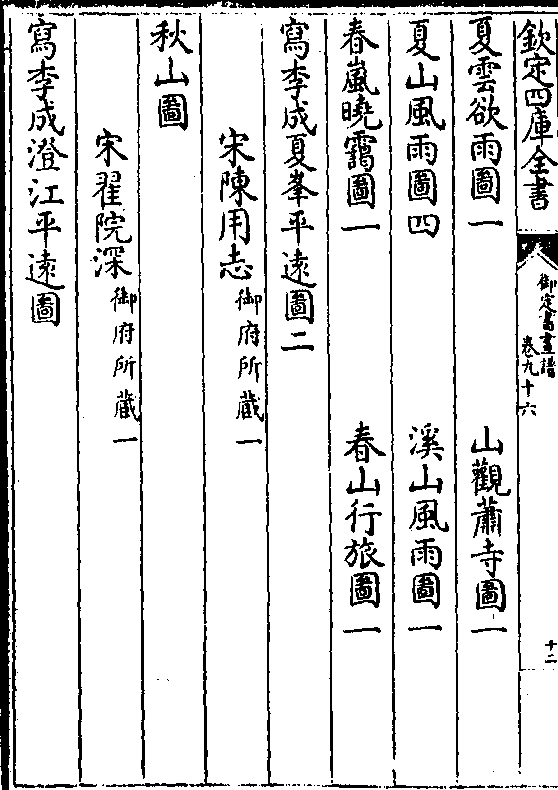 欽定四庫全書
御定書畫譜
卷九十六
十二
夏雲欲雨圖一　山觀蕭寺圖一
夏山風雨圖四　溪山風雨圖一
春嵐曉靄圖一　春山行旅圖一
寫李成夏峯平遠圖二
宋陳用志御府所藏一
秋山圖
宋翟院深御府所藏一
寫李成澄江平遠圖